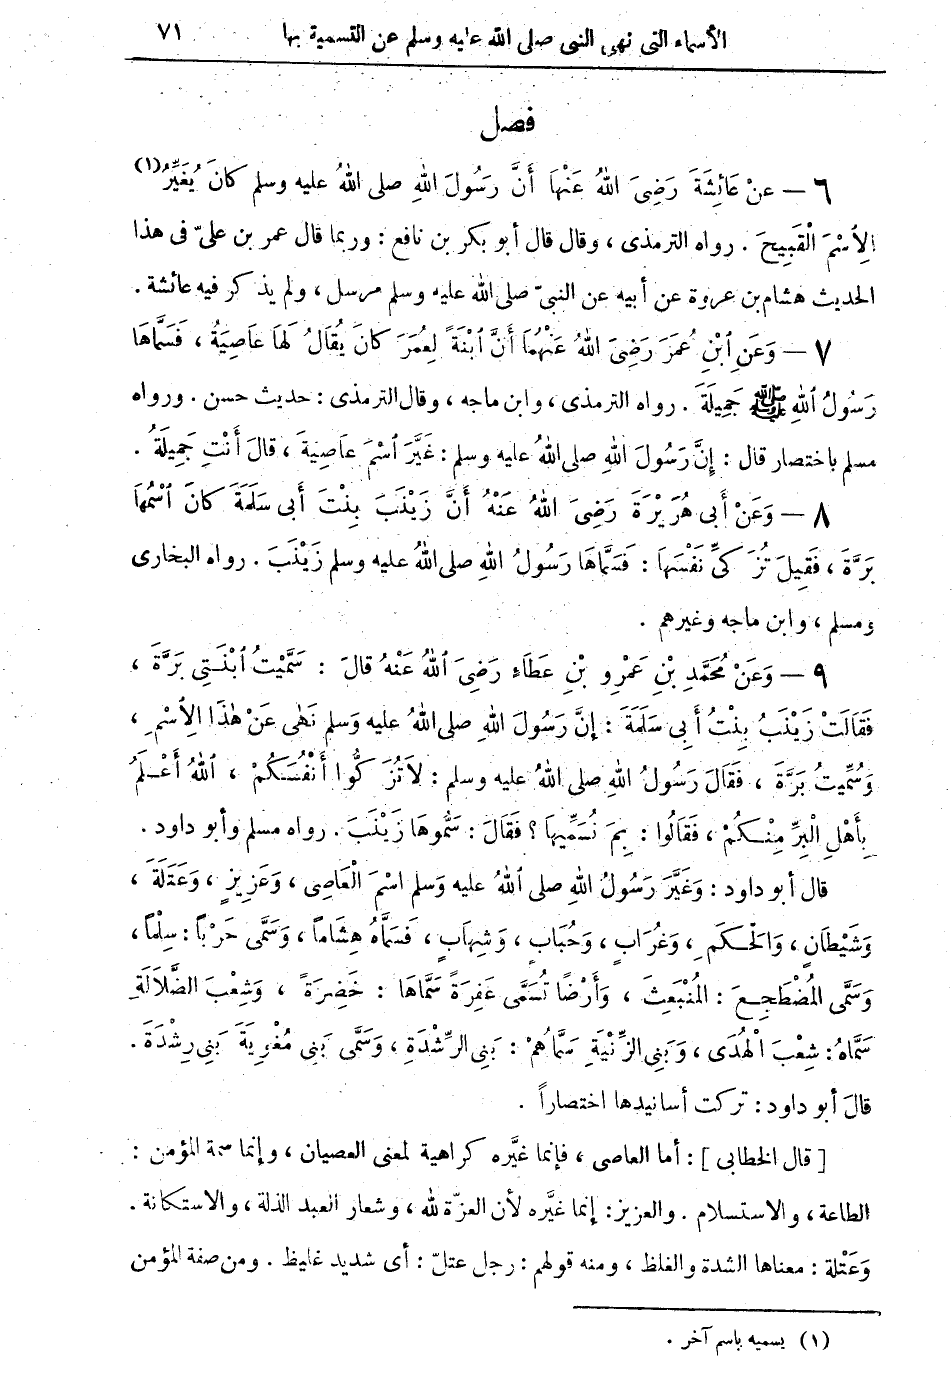 الأسماء التى نهى النبى صلى الله عليه وسلم عن التسمية بها ٧١
فصل
٦ – عنْ عَائِشَةَ رَضِىَ اللهُ عَنْهَا أَنَّ رَسُولَ اللهِ صلى اللهُ عليه وسلم كَانَ يُغَيِّرُ(١)
الِاسْمَ الْقَبِيحَ . رواه الترمذى ، وقال قال أبو بكر بن نافع : وربما قال عمر بن علىّ فى هذا
الحديث هشام بن عروة عن أبيه عن النبىّ صلى الله عليه وسلم مرسل ، ولم يذكر فيه عائشة .
٧ – وَعَنِ ٱبْنِ عُمَرَ رَضِىَ اللهُ عَنْهُمَا أَنَّ ٱبْنَةً لِعُمَرَ كَانَ يُقَالُ لَهَا عَاصِيَةُ ، فَسَمَّاهَا
رَسُولُ ٱللهِ ﷺ جَمِيلَةَ . رواه الترمذى ، وابن ماجه ، وقال الترمذى : حديث حسن . ورواه
مسلم باختصار قال : إِنَّ رَسُولَ اللهِ صلى اللهُ عليه وسلم : غَيَّرَ ٱسْمَ عَاصِيَةَ ، قالَ أَنْتِ جَمِيلَةُ .
٨ – وَعَنْ أَبِى هُرَيْرَةَ رَضِىَ اللهُ عَنْهُ أَنَّ زَيْنَبَ بِنْتَ أَبِى سَلَمَةَ كَانَ ٱسْمُهَا
بَرَّةَ ، فَقِيلَ تُزَكِّى نَفْسَهَا : فَسَمَّاهَا رَسُولُ اللهِ صلى اللهُ عليه وسلم زَيْنَبَ . رواه البخارى
ومسلم ، وابن ماجه وغيرهم .
٩ – وَعَنْ مُحَمَّدِ بْنِ عَمْرِو بْنِ عَطَاءٍ رَضِىَ ٱللهُ عَنْهُ قالَ : سَمَّيْتُ ٱبْنَتِى بَرَّةَ ،
فَقَالَتْ زَيْنَبُ بِنْتُ أَبِى سَلَمَةَ : إِنَّ رَسُولَ اللهِ صلى اللهُ عليه وَسلم نَهَى عَنْ هٰذَا الِاسْمِ ،
وَسُمِّيتُ بَرَّةَ ، فَقَالَ رَسُولُ اللهِ صلى اللهُ عليه وسلم : لاَ تُزَكُّوا أَنْفُسَكُمْ ، ٱللهُ أَعْلَمُ
بِأَهْلِ الْبِرِّ مِنْكُمْ ، فَقَالُوا : بِمَ نُسَمِّيهَا ؟ فَقَالَ : سَمُّوهَا زَيْنَبَ . رواه مسلم وأبو داود .
قال أبو داود : وَغَيَّرَ رَسُولُ اللهِ صلى ٱللهُ عليه وَسلم اسْمَ الْعَاصِى ، وَعَزِيزٍ ، وَعَتَلَةَ ،
وَشَيْطَانٍ ، وَالْحَكَمِ ، وَغُرَابٍ ، وَحُبَابٍ ، وَشِهَابٍ ، فَسَمَّاهُ هِشَاماً ، وَسَمَّى حَرْباً : سِلْماً ،
وَسَمَّى الْمُضْطَجِعَ : الْمُنْبَعِثَ ، وَأَرْضًا تُسَمَّى عَفِرَةً سَمَّاهَا : خَضِرَةً ، وَشِعْبَ الضَّلَالَةِ
سَمَّاهُ : شِعْبَ الْهُدَى ، وَبَنِى الزِّنْيَةِ سَمَّاهُمْ : بَنِى الرِّشْدَةِ ، وَسَمَّى بَنِى مُغْوِيَةَ بَنِى رِشْدَةَ .
قالَ أبو داود : تركت أسانيدها اختصاراً .
[ قال الخطابى ] : أما العاصى ، فإنما غيَّره كراهية لمعنى العصيان ، وإنما سمة المؤمن :
الطاعة ، والاستسلام . والعزيز : إنما غيَّره لأن العزّة لله ، وشعار العبد الذلة ، والاستكانة .
وَعَتْلة : معناها الشدة والغلظ ، ومنه قولهم : رجل عتلّ : أى شديد غليظ . ومن صفة المؤمن
(١) يسميه باسم آخر .